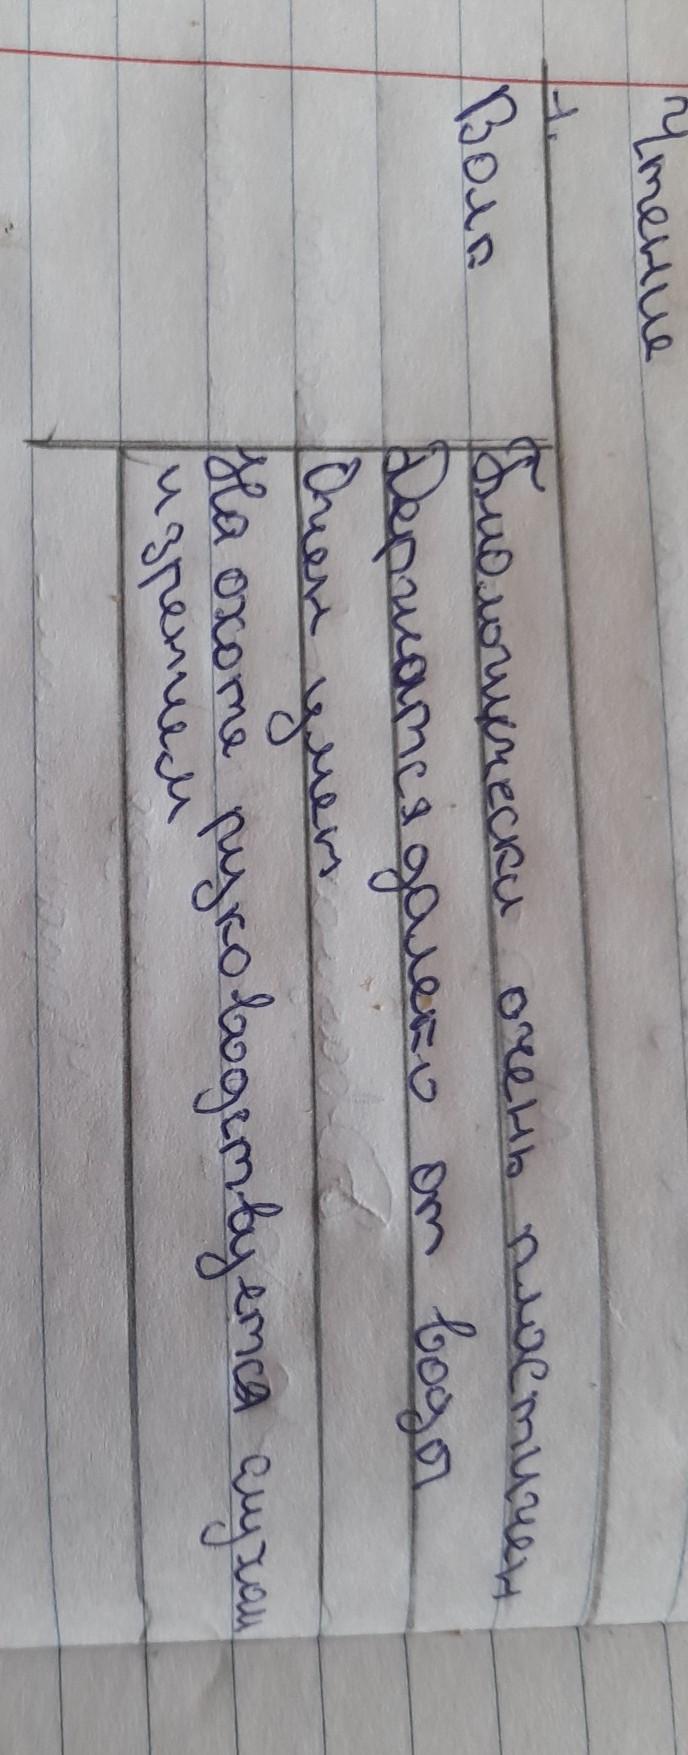 Чтение
1.
Волк
Биологически очень пластичен
Держатся далеко от воды
Очен умен
На охоте руководствуется слухом
и зрением